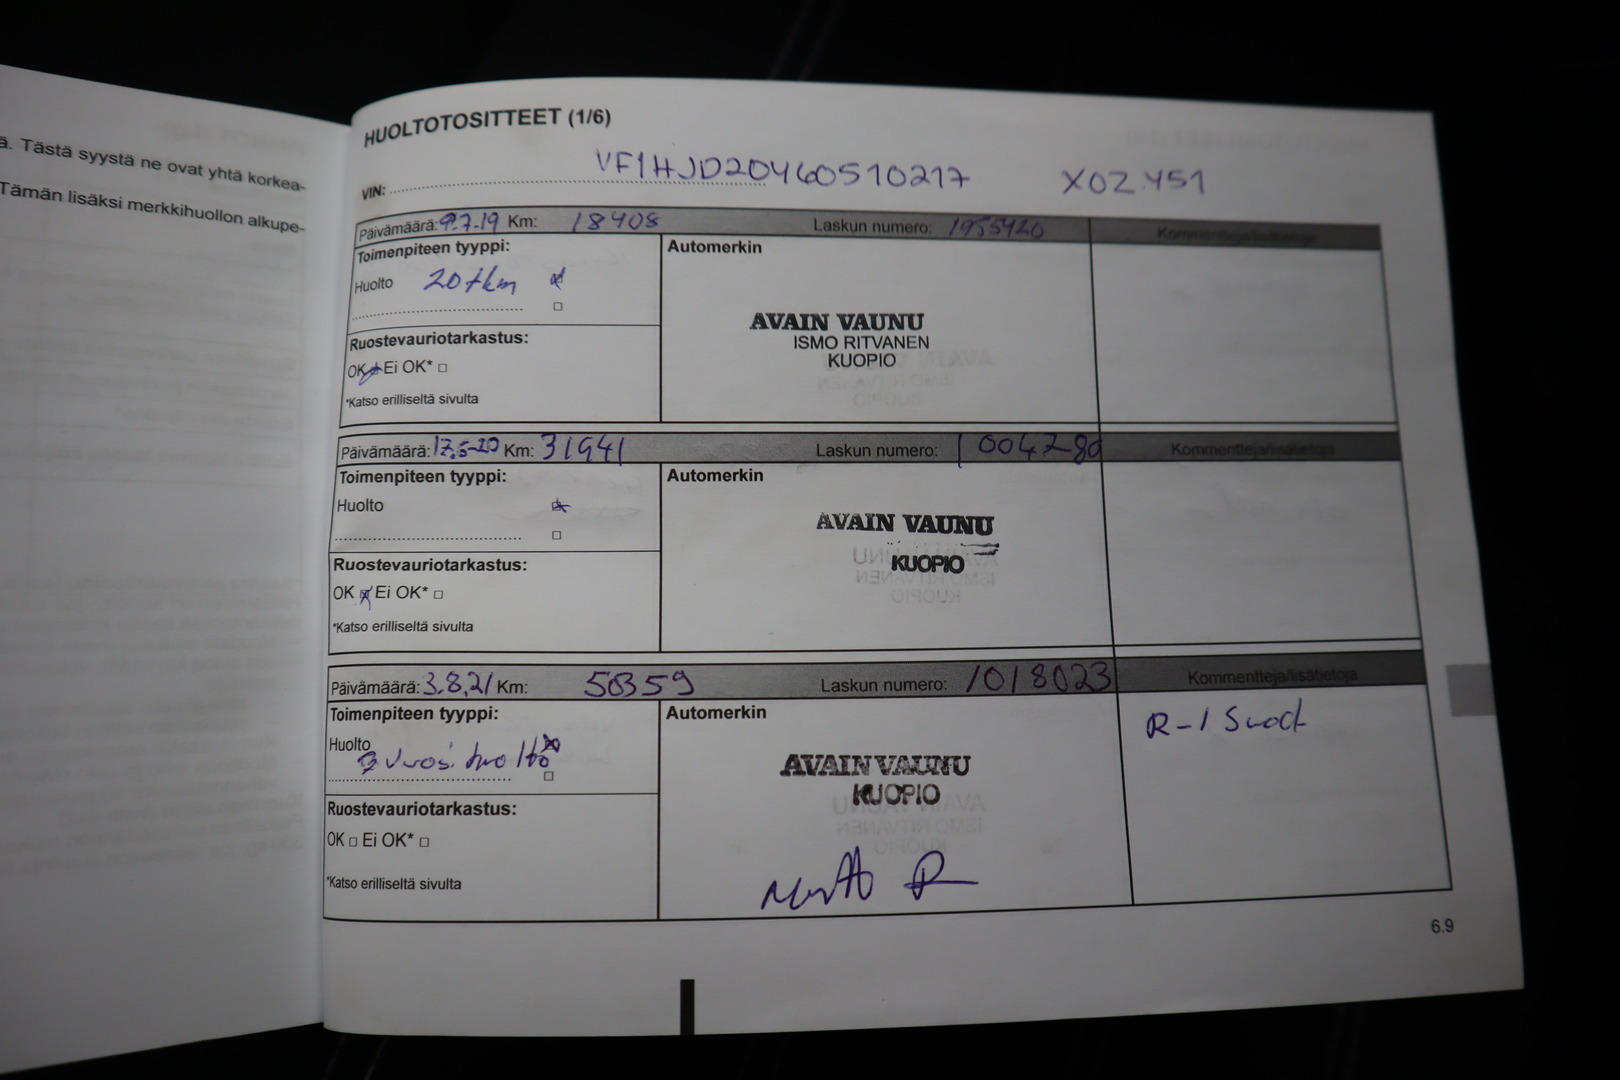 ä. Tästä syystä ne ovat yhtä korkea-
Tämän lisäksi merkkihuollon alkupe-
HUOLTOTOSITTEET (1/6)
VIN: VF1HJD20460510217 XOZ-451
Päivämäärä: 9.7.19 Km: 18408 Laskun numero: 1955420 Kommentteja/lisätietoja
Toimenpiteen tyyppi:
Automerkin
Huolto 20tkm
AVAIN VAUNU
ISMO RITVANEN
KUOPIO
Ruostevauriotarkastus:
OK Ei OK*
*Katso erilliseltä sivulta
Päivämäärä: 17.5-20 Km: 31941 Laskun numero: 1004280 Kommentteja/lisätietoja
Toimenpiteen tyyppi:
Automerkin
Huolto
AVAIN VAUNU
KUOPIO
Ruostevauriotarkastus:
OK Ei OK*
*Katso erilliseltä sivulta
Päivämäärä: 3.8.21 Km: 50359 Laskun numero: 1018023 Kommentteja/lisätietoja
Toimenpiteen tyyppi:
Automerkin
R-1 Suod
Huolto
3 vuosi huolto
AVAIN VAUNU
KUOPIO
Ruostevauriotarkastus:
OK Ei OK*
*Katso erilliseltä sivulta
6.9